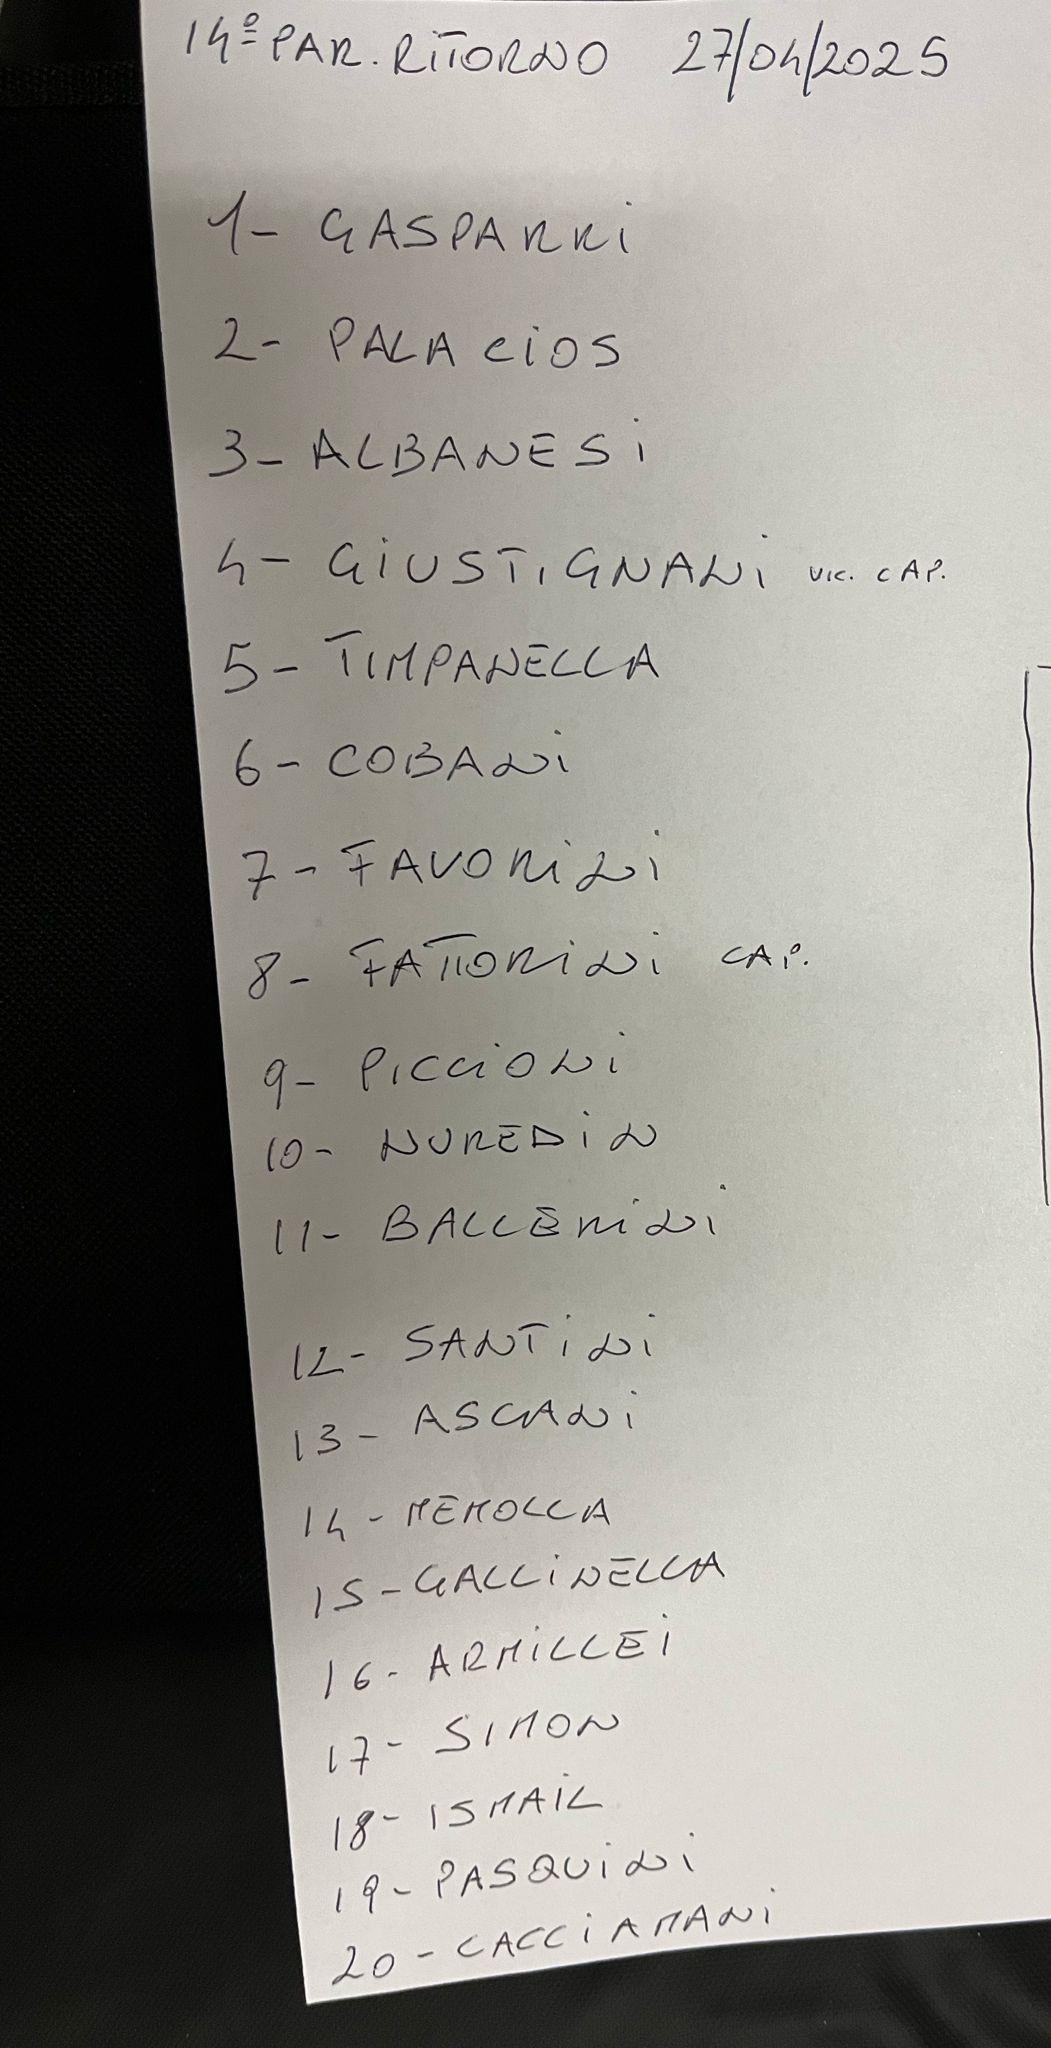 14º PAR. RITORNO 27/04/2025
1- GASPARRI
2- PALACIOS
3- ALBANESI
4- GIUSTIGNANI VIC. CAP.
5- TIMPANELLA
6- COBANI
7- FAVORINI
8- FATTORINI CAP.
9- PICCIONI
10- NUREDIN
11- BALLERINI
12- SANTINI
13- ASCANI
14- MEMOLLA
15- GALLINELLA
16- ARMILLEI
17- SIMON
18- ISMAIL
19- PASQUINI
20- CACCIAMANI